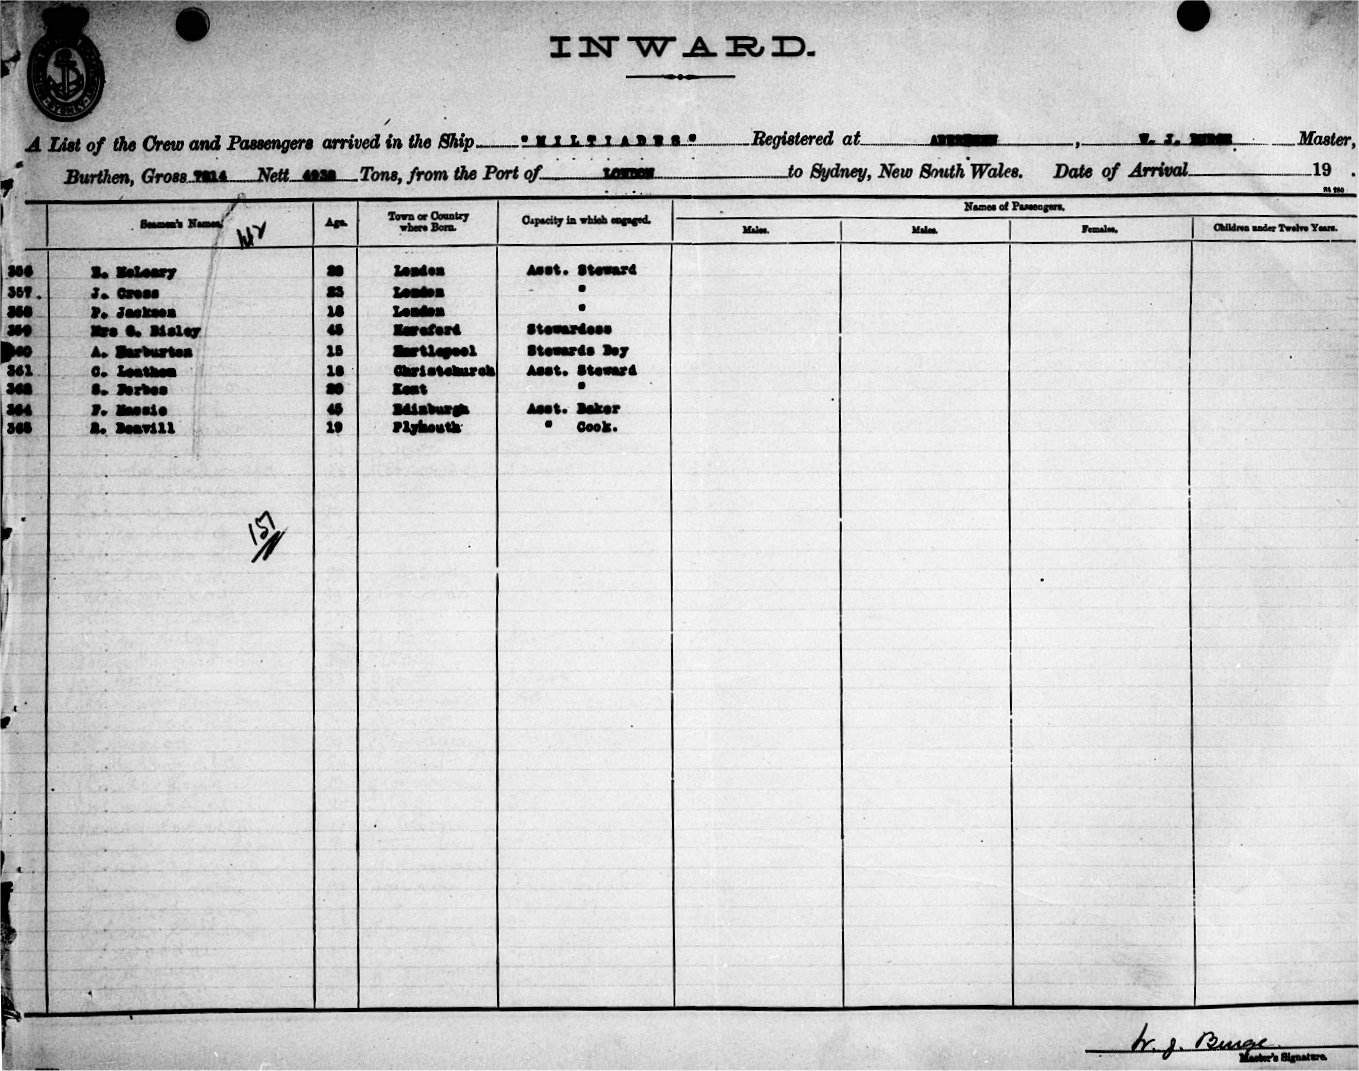 INWARD.
A List of the Crew and Passengers arrived in the Ship "MILTIADES" Registered at ABERDEEN, W. J. BURGE Master,
Burthen, Gross 7814 Nett 4930 Tons, from the Port of LONDON to Sydney, New South Wales. Date of Arrival 19 .
Names of Passengers.
Seamen's Names. Age. Town or Country where Born. Capacity in which engaged. Males. Males. Females. Children under Twelve Years.
356 McLeary London Asst. Steward
357. J. Cross 23 London "
358 P. Jackson 18 London "
359 Mrs G. Bisley 45 Hereford Stewardess
A. Harburton 15 Hartlepool Stewards Boy
361 C. Leathem 18 Christchurch Asst. Steward
S. Forbes 20 Kent "
364 F. Massie 45 Edinburgh Asst. Baker
365 Benvill 19 Plymouth " Cook.
151
W. J. Burge
Master's Signature.